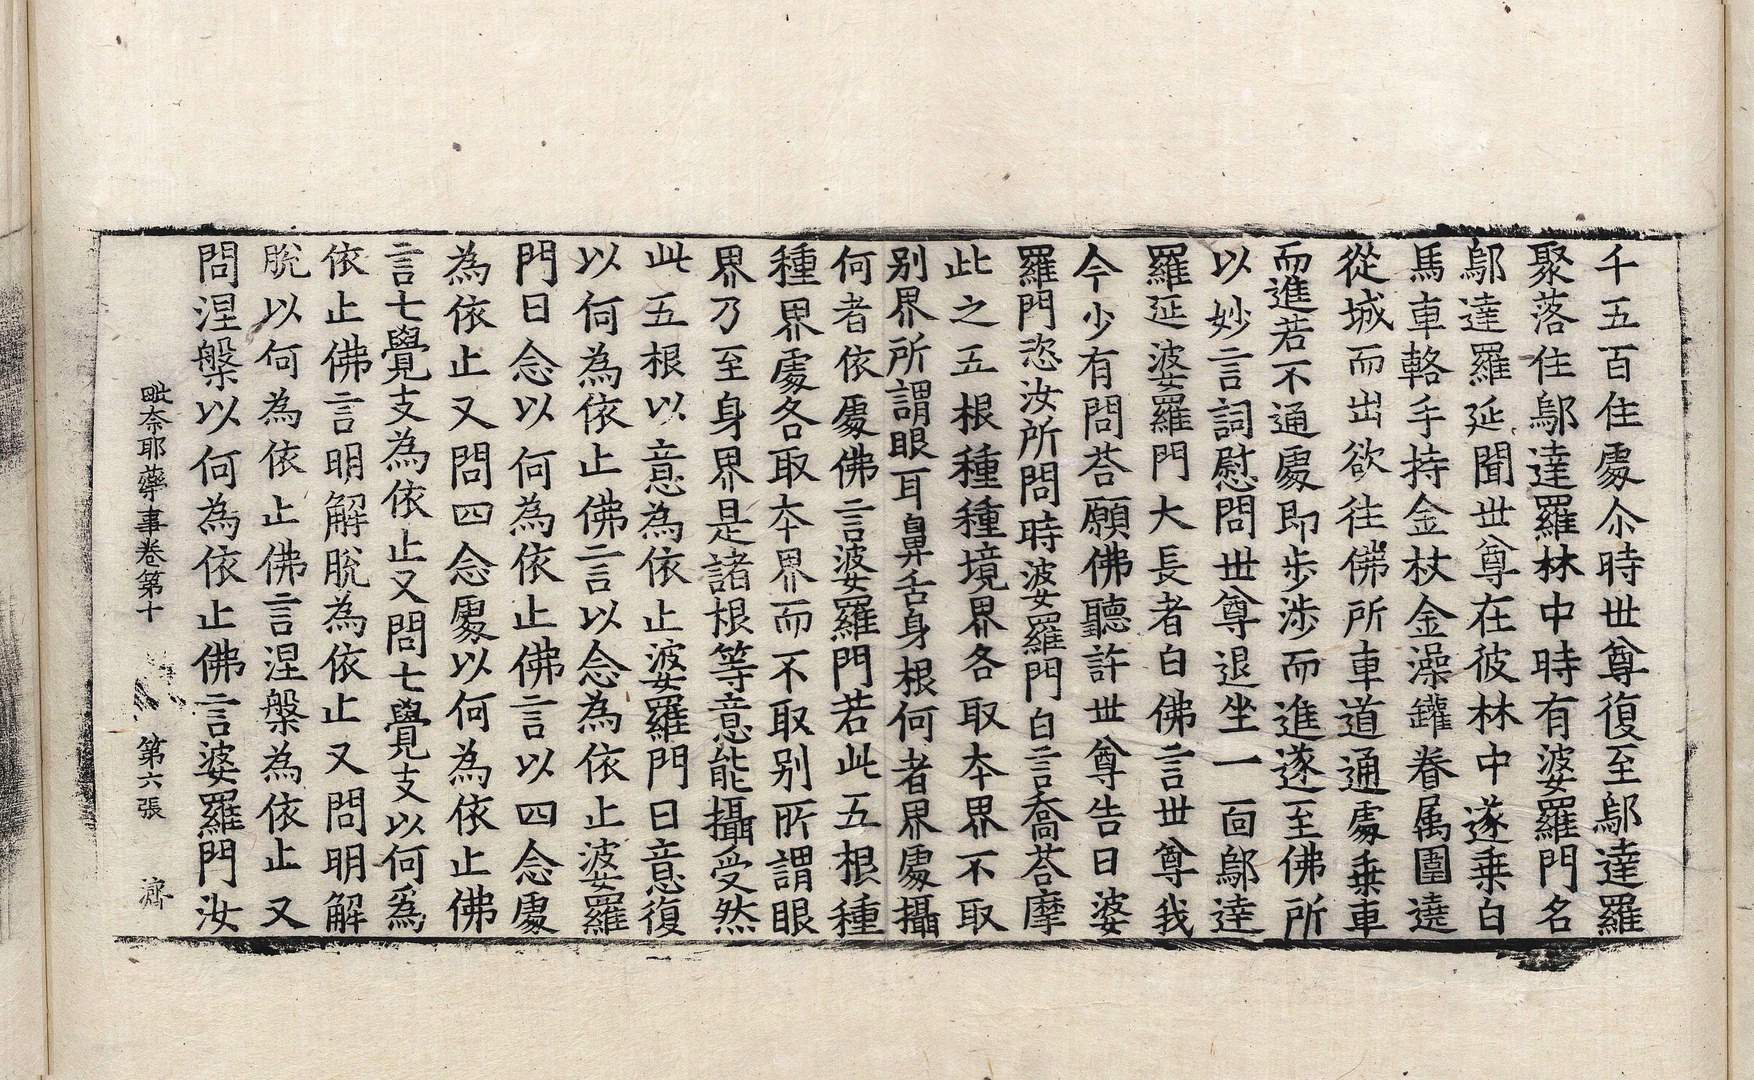 千五百住處尒時世尊復至鄔達羅
聚落住鄔達羅林中時有婆羅門名
鄔達羅延聞世尊在彼林中遂乗白
馬車輅手持金杖金澡鑵眷属圍遶
從城而出欲往佛所車道通處乗車
而進若不通處即步涉而進遂至佛所
以妙言詞慰問世尊退坐一面鄔達
羅延婆羅門大長者白佛言世尊我
今少有問荅願佛聽許世尊告曰婆
羅門恣汝所問時婆羅門白言喬荅摩
此之五根種種境界各取夲界不取
别界所謂眼耳鼻舌身根何者界處攝
何者依處佛言婆羅門若此五根種
種界處各取夲界而不取别所謂眼
界乃至身界是諸根等意能攝受然
此五根以意為依止婆羅門曰意復
以何為依止佛言以念為依止婆羅
門曰念以何為依止佛言以四念處
為依止又問四念處以何為依止佛
言七覺支為依止又問七覺支以何為
依止佛言明解脫為依止又問明解
脫以何為依止佛言涅槃為依止又
問涅槃以何為依止佛言婆羅門汝
毗奈耶藥事卷第十 第六張 濟